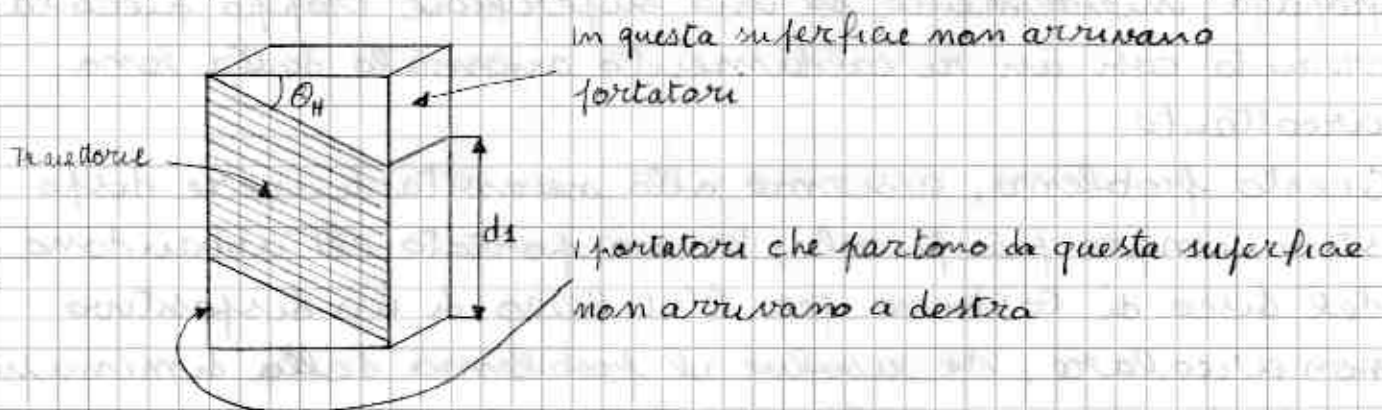 in questa superficie non arrivano
portatori
θH
Traiettorie
d1
i portatori che partono da questa superficie
non arrivano a destra